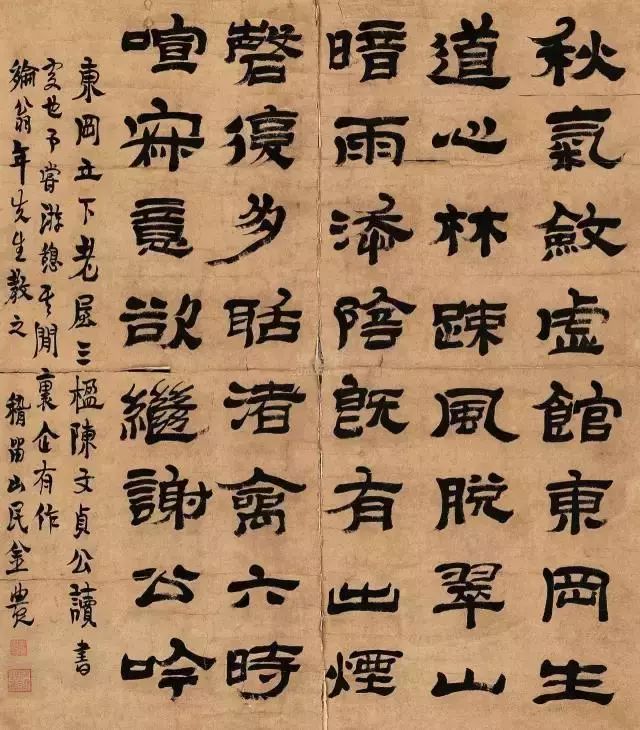 秋氣斂虛館東岡生
道心林踈風脫翠山
暗雨添陰既有出煙
磬復多聒渚禽六時
喧寂意欲繼謝公吟
東岡下老屋三楹陳文貞公讀書
處也予嘗游憩其間褱企有作
綸翁年先生教之 稽留山民金農